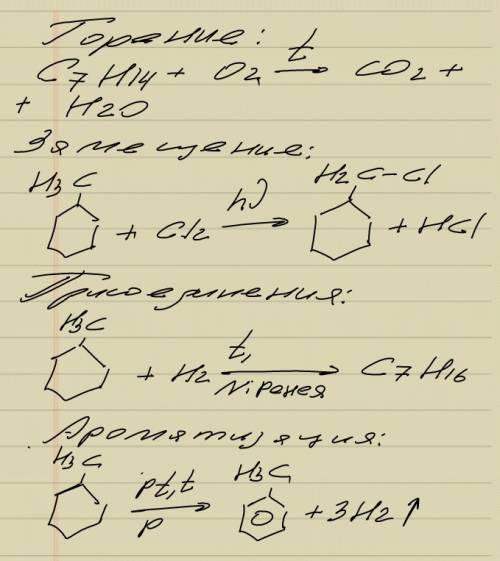 Горение:
C7H14 + O2 t→ CO2 +
+ H2O
Замещение:
H3C H2C-Cl
+ Cl2 hν→ + HCl
Присоединения:
H3C
+ H2 t, Ni Ренея→ C7H16
Ароматизация:
H3C H3C
pt, t p→ + 3H2↑